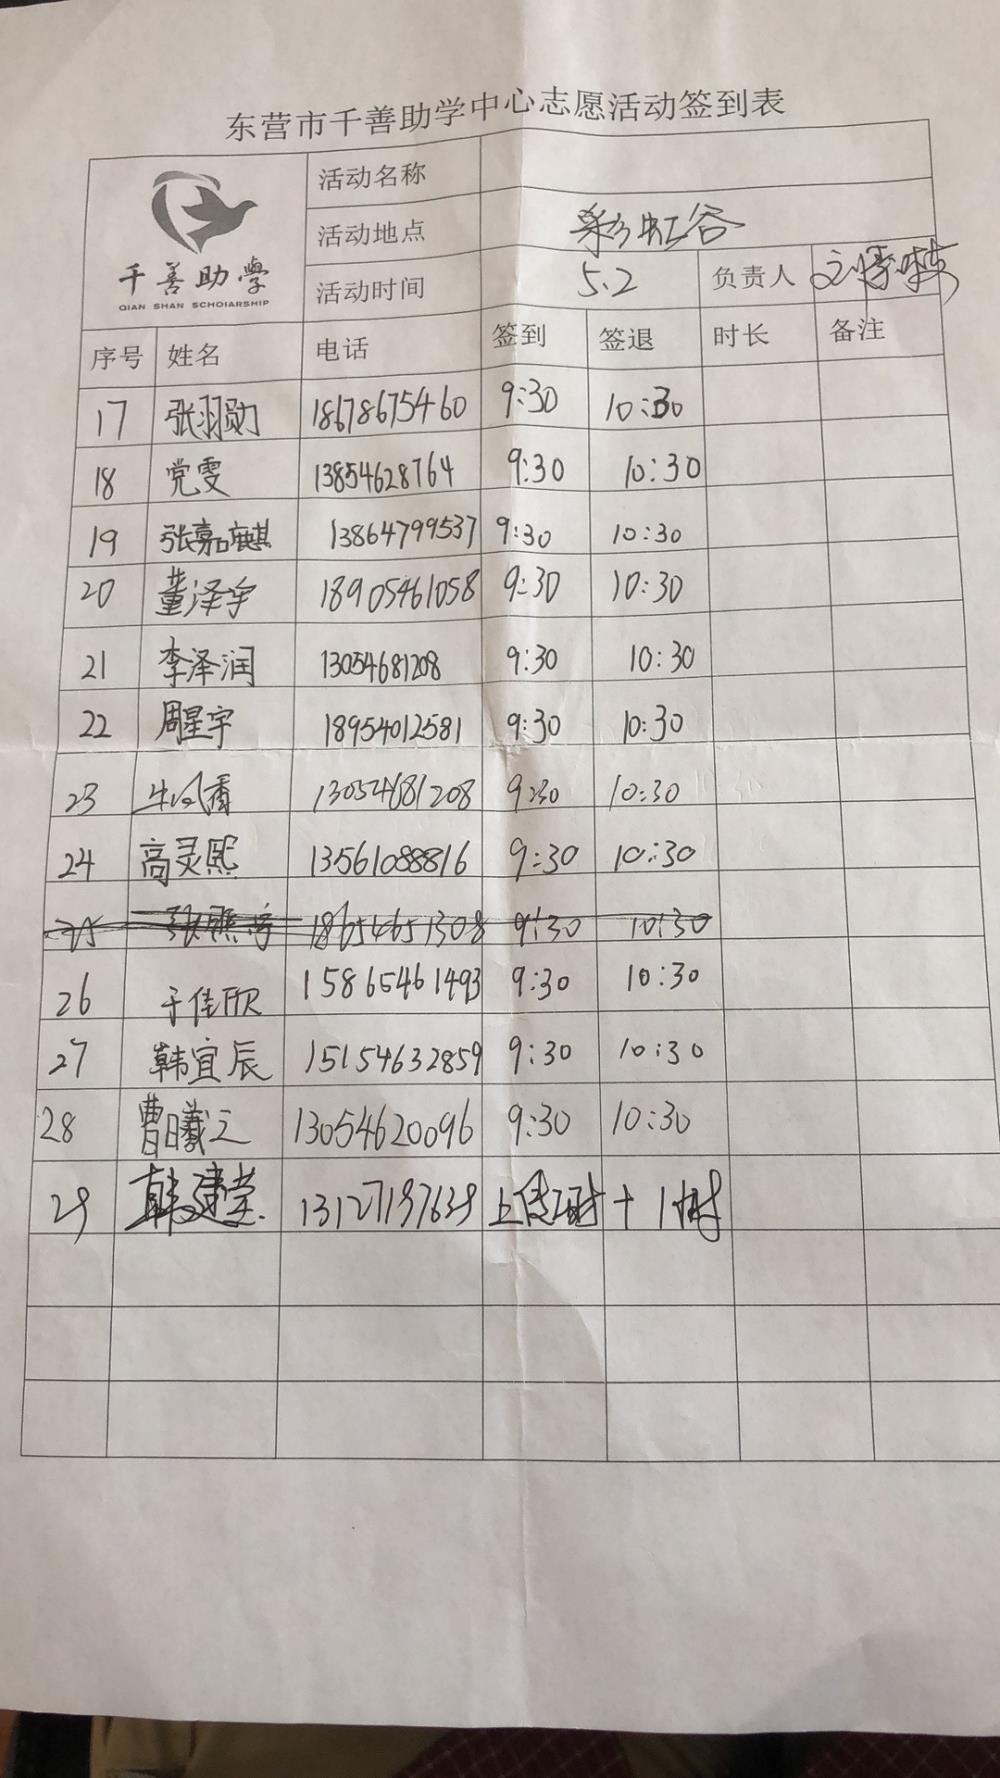 东营市千善助学中心志愿活动签到表
千善助学
QIAN SHAN SCHOIARSHIP
活动名称
活动地点 彩虹谷
活动时间 5.2 负责人
序号 姓名 电话 签到 签退 时长 备注
17 张羽勋 18678675460 9:30 10:30
18 党雯 13854628764 9:30 10:30
19 张嘉麒 13864799537 9:30 10:30
20 董泽宇 18905461058 9:30 10:30
21 李泽润 13054681208 9:30 10:30
22 周星宇 18954012581 9:30 10:30
23 牛凤香 13054681208 9:30 10:30
24 高灵熙 13561088816 9:30 10:30
25 18654651308 9:30 10:30
26 于佳欣 15865461493 9:30 10:30
27 韩宜辰 15154632859 9:30 10:30
28 曹曦之 13054620096 9:30 10:30
29 韩建荣 13127197639 上传工时 + 1小时